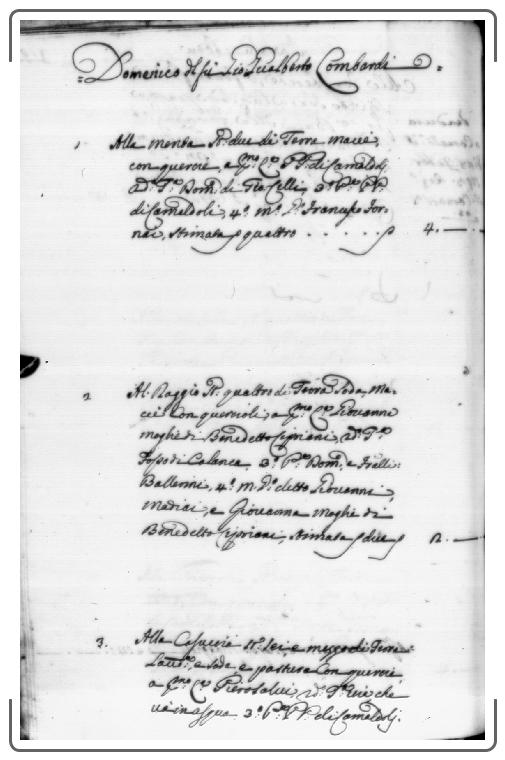 Domenico di fu Pio Gualberto Lombardi
1 Alla menta St. due di Terra macei,
con querce, a pmo Co PP. di Camaldoli
2do Tro Dom. de 3o Pmo PP.
di Camaldoli, 4o mo Franco For-
nai, stimata p quattro . . . . . . p 4. —
2 Al Raggio St. quattro di Terra Soda, Ma-
cei con quercioli, a pmo Co Giovanna
moglie di Benedetto Cipriani, 2do Tro
Fosso di Calanca 3o Pmo Dom. e Frelli
Ballerini, 4o m detto Giovanni
Medici, e Giovanna moglie di
Benedetto Cipriani, stimata p due p 2. —
3. Alla Casuccie St. sei e mezzo di Terra
Lavta, e soda e pastura con querce
a pmo Co Piero Salvi, 2do che
va in 3o Pmo PP. di Camaldoli.